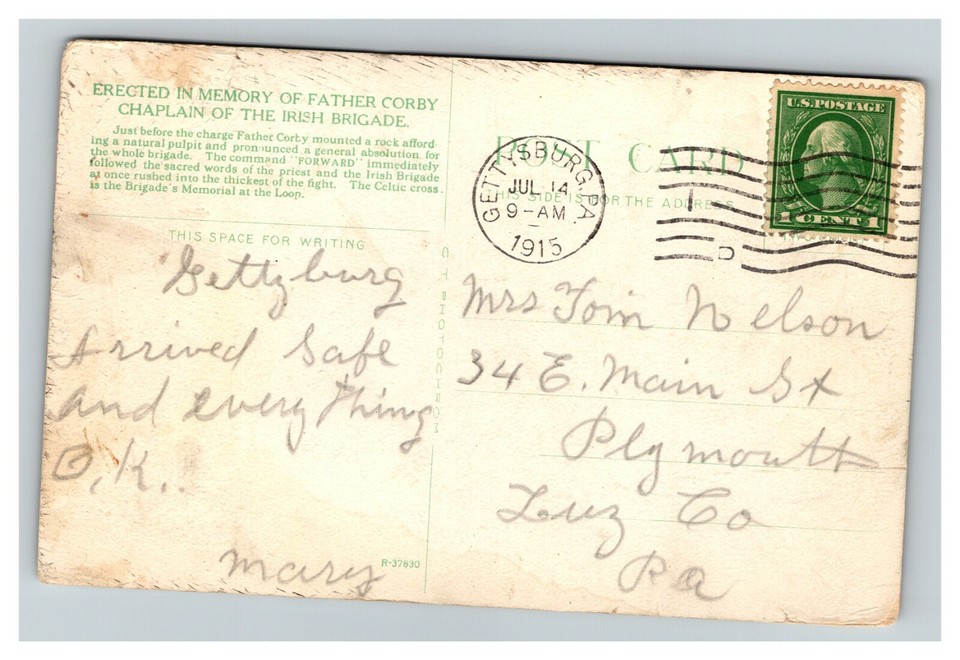 ERECTED IN MEMORY OF FATHER CORBY
CHAPLAIN OF THE IRISH BRIGADE.
Just before the charge Father Corby mounted a rock afford-
ing a natural pulpit and pronounced a general absolution for
the whole brigade. The command "FORWARD" immediately
followed the sacred words of the priest and the Irish Brigade
at once rushed into the thickest of the fight. The Celtic cross
is the Brigade's Memorial at the Loop.
THIS SPACE FOR WRITING
Gettyburg
Arrived Safe
and everything
O.K..
Mary
R-37830
C T PHOTOCHROM
POST CARD
THIS SIDE IS FOR THE ADDRESS
GETTYSBURG, PA
JUL 14
9-AM
1915
D
U.S. POSTAGE
1 CENT 1
Mrs Tom Nelson
34 E. Main St
Plymouth
Luz Co
Pa